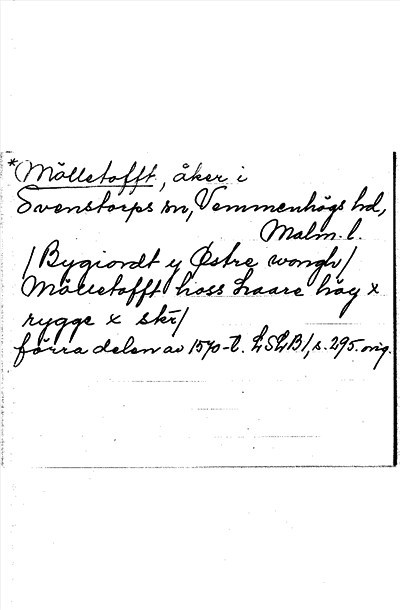 *Mölletofft, åker i
Svenstorps sn, Vemmenhögs hd,
Malm. l.
/Bygiordt y Østre wongh/
Mölletofft hoss haare höy x
rygge x skr/
förra delen av 1570-t. LSLB/, s. 295. orig.